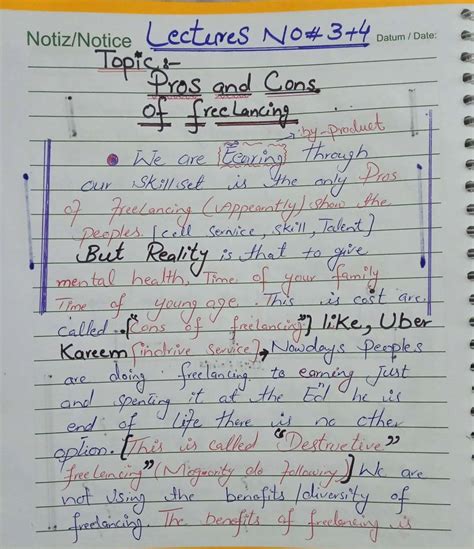 Notiz/Notice Lectures No# 3+4 Datum / Date:
Topic:-
Pros and Cons
Of freelancing
by-product
We are {Earing} through
our skill set is the only Pros
of freelancing (Appearntly) show the
peoples [cell service, skill, Talent]
But Reality is that to give
mental health, Time of your family
Time of young age. This is cost are
called ["Cons of freelancing"] like, Uber
Kareem [indrive service] → Nowdays peoples
are doing freelancing to earning Just
and spenting it at the Ed" he is
end of life there is no other
option. [This is called "Destructive"
freelancing" (Megurity do following)] We are
not using the benefits /diversity of
freelancing. The benefits of freelancing is